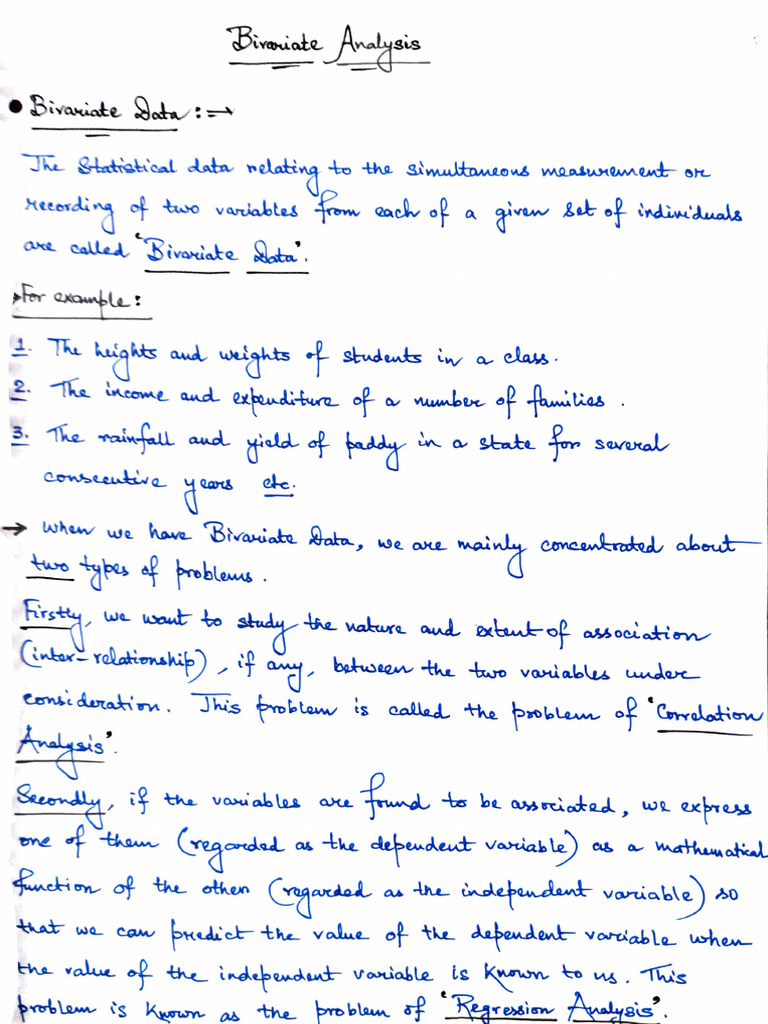 Bivariate Analysis
● Bivariate Data :⇒
The Statistical data relating to the simultaneous measurement or
recording of two variables from each of a given set of individuals
are called 'Bivariate Data'.
→For example :
1. The heights and weights of students in a class.
2. The income and expenditure of a number of families .
3. The rainfall and yield of paddy in a state for several
consecutive years etc.
→ When we have Bivariate Data, we are mainly concentrated about
two types of problems .
Firstly, we want to study the nature and extent of association
(inter-relationship) , if any, between the two variables under
consideration. This problem is called the problem of 'Correlation
Analysis'.
Secondly, if the variables are found to be associated, we express
one of them (regarded as the dependent variable) as a mathematical
function of the other (regarded as the independent variable) so
that we can predict the value of the dependent variable when
the value of the independent variable is known to us. This
problem is known as the problem of 'Regression Analysis'.